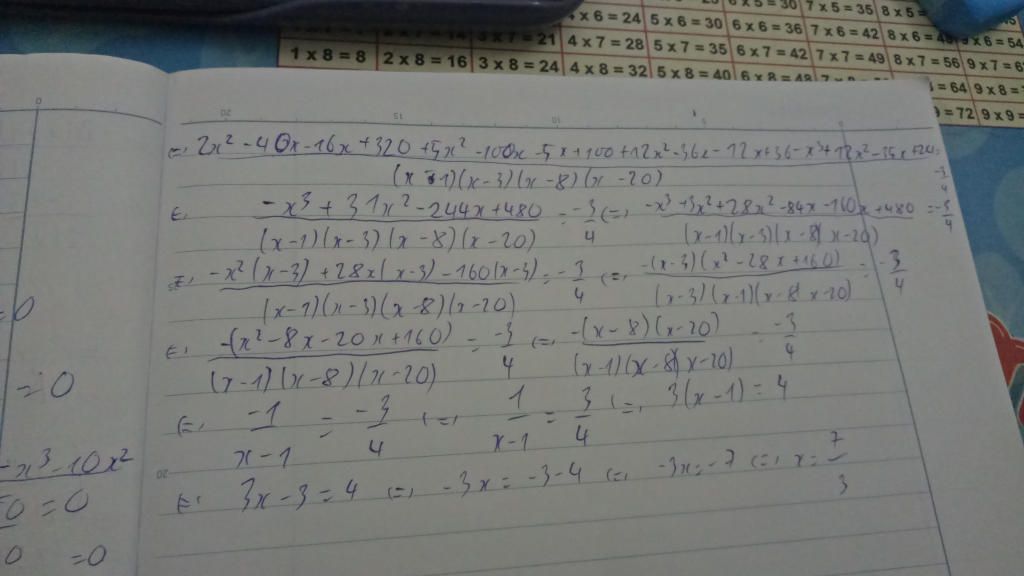 × 6 = 24 5 × 6 = 30 6 × 6 = 36 7 × 5 = 35 8 × 5 =
7 × 6 = 42
3 × 7 = 21 4 × 7 = 28 5 × 7 = 35 6 × 7 = 42 7 × 7 = 49 8 × 7 = 56
1 × 8 = 8 2 × 8 = 16 3 × 8 = 24 4 × 8 = 32 5 × 8 = 40 6 × 8 = 48
= 64 9 × 8 =
= 72 9 × 9 =
0 20 15 10 5 0
2x² - 40x - 16x + 320 + 5x² - 100x - 5x + 100 + 12x² - 36x - 12x + 36 - x³ + 12x²
(x-1)(x-3)(x-8)(x-20)
-3/4
-x³ + 31x² - 244x + 480 / (x-1)(x-3)(x-8)(x-20) = -3/4 (=, -x³ + 3x² + 28x² - 84x - 160x + 480 / (x-1)(x-3)(x-8)(x-20) = -3/4
-x²(x-3) + 28x(x-3) - 160(x-3) / (x-1)(x-3)(x-8)(x-20) = -3/4 (=, -(x-3)(x² - 28x + 160) / (x-3)(x-1)(x-8)(x-20) = -3/4
-(x² - 8x - 20x + 160) / (x-1)(x-8)(x-20) = -3/4 (=, -(x-8)(x-20) / (x-1)(x-8)(x-20) = -3/4
-1/x-1 = -3/4 (=, 1/x-1 = 3/4 (=, 3(x-1) = 4
3x - 3 = 4 (=, -3x = -3-4 (=, -3x = -7 (=, x = 7/3
20
=0
=0
-x³ - 10x²
=0
0 =0